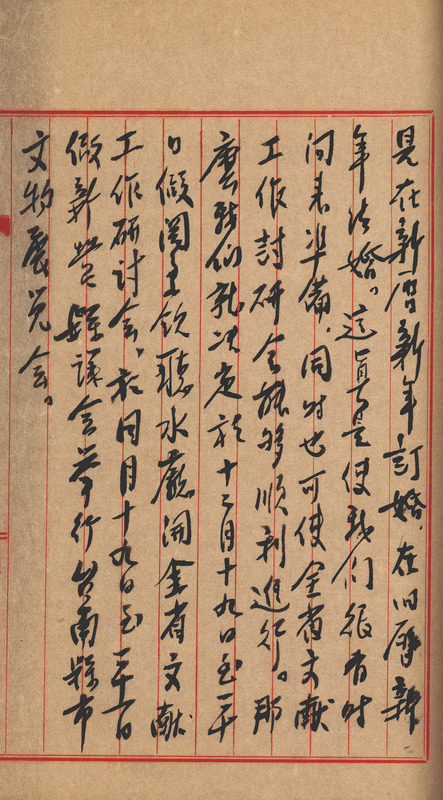 是在新曆新年訂婚，在旧曆新
年结婚。這皆是使我们很有时
间来準備，同时也可使全省文献
工作討研会能够順利進行。那
麼我们就决定於十二月十九日至二十
日假関子嶺聽水廬開全省文献
工作研討会，於同月十九日至二十一日
假新营縣議会举行台南縣市
文物展览会。